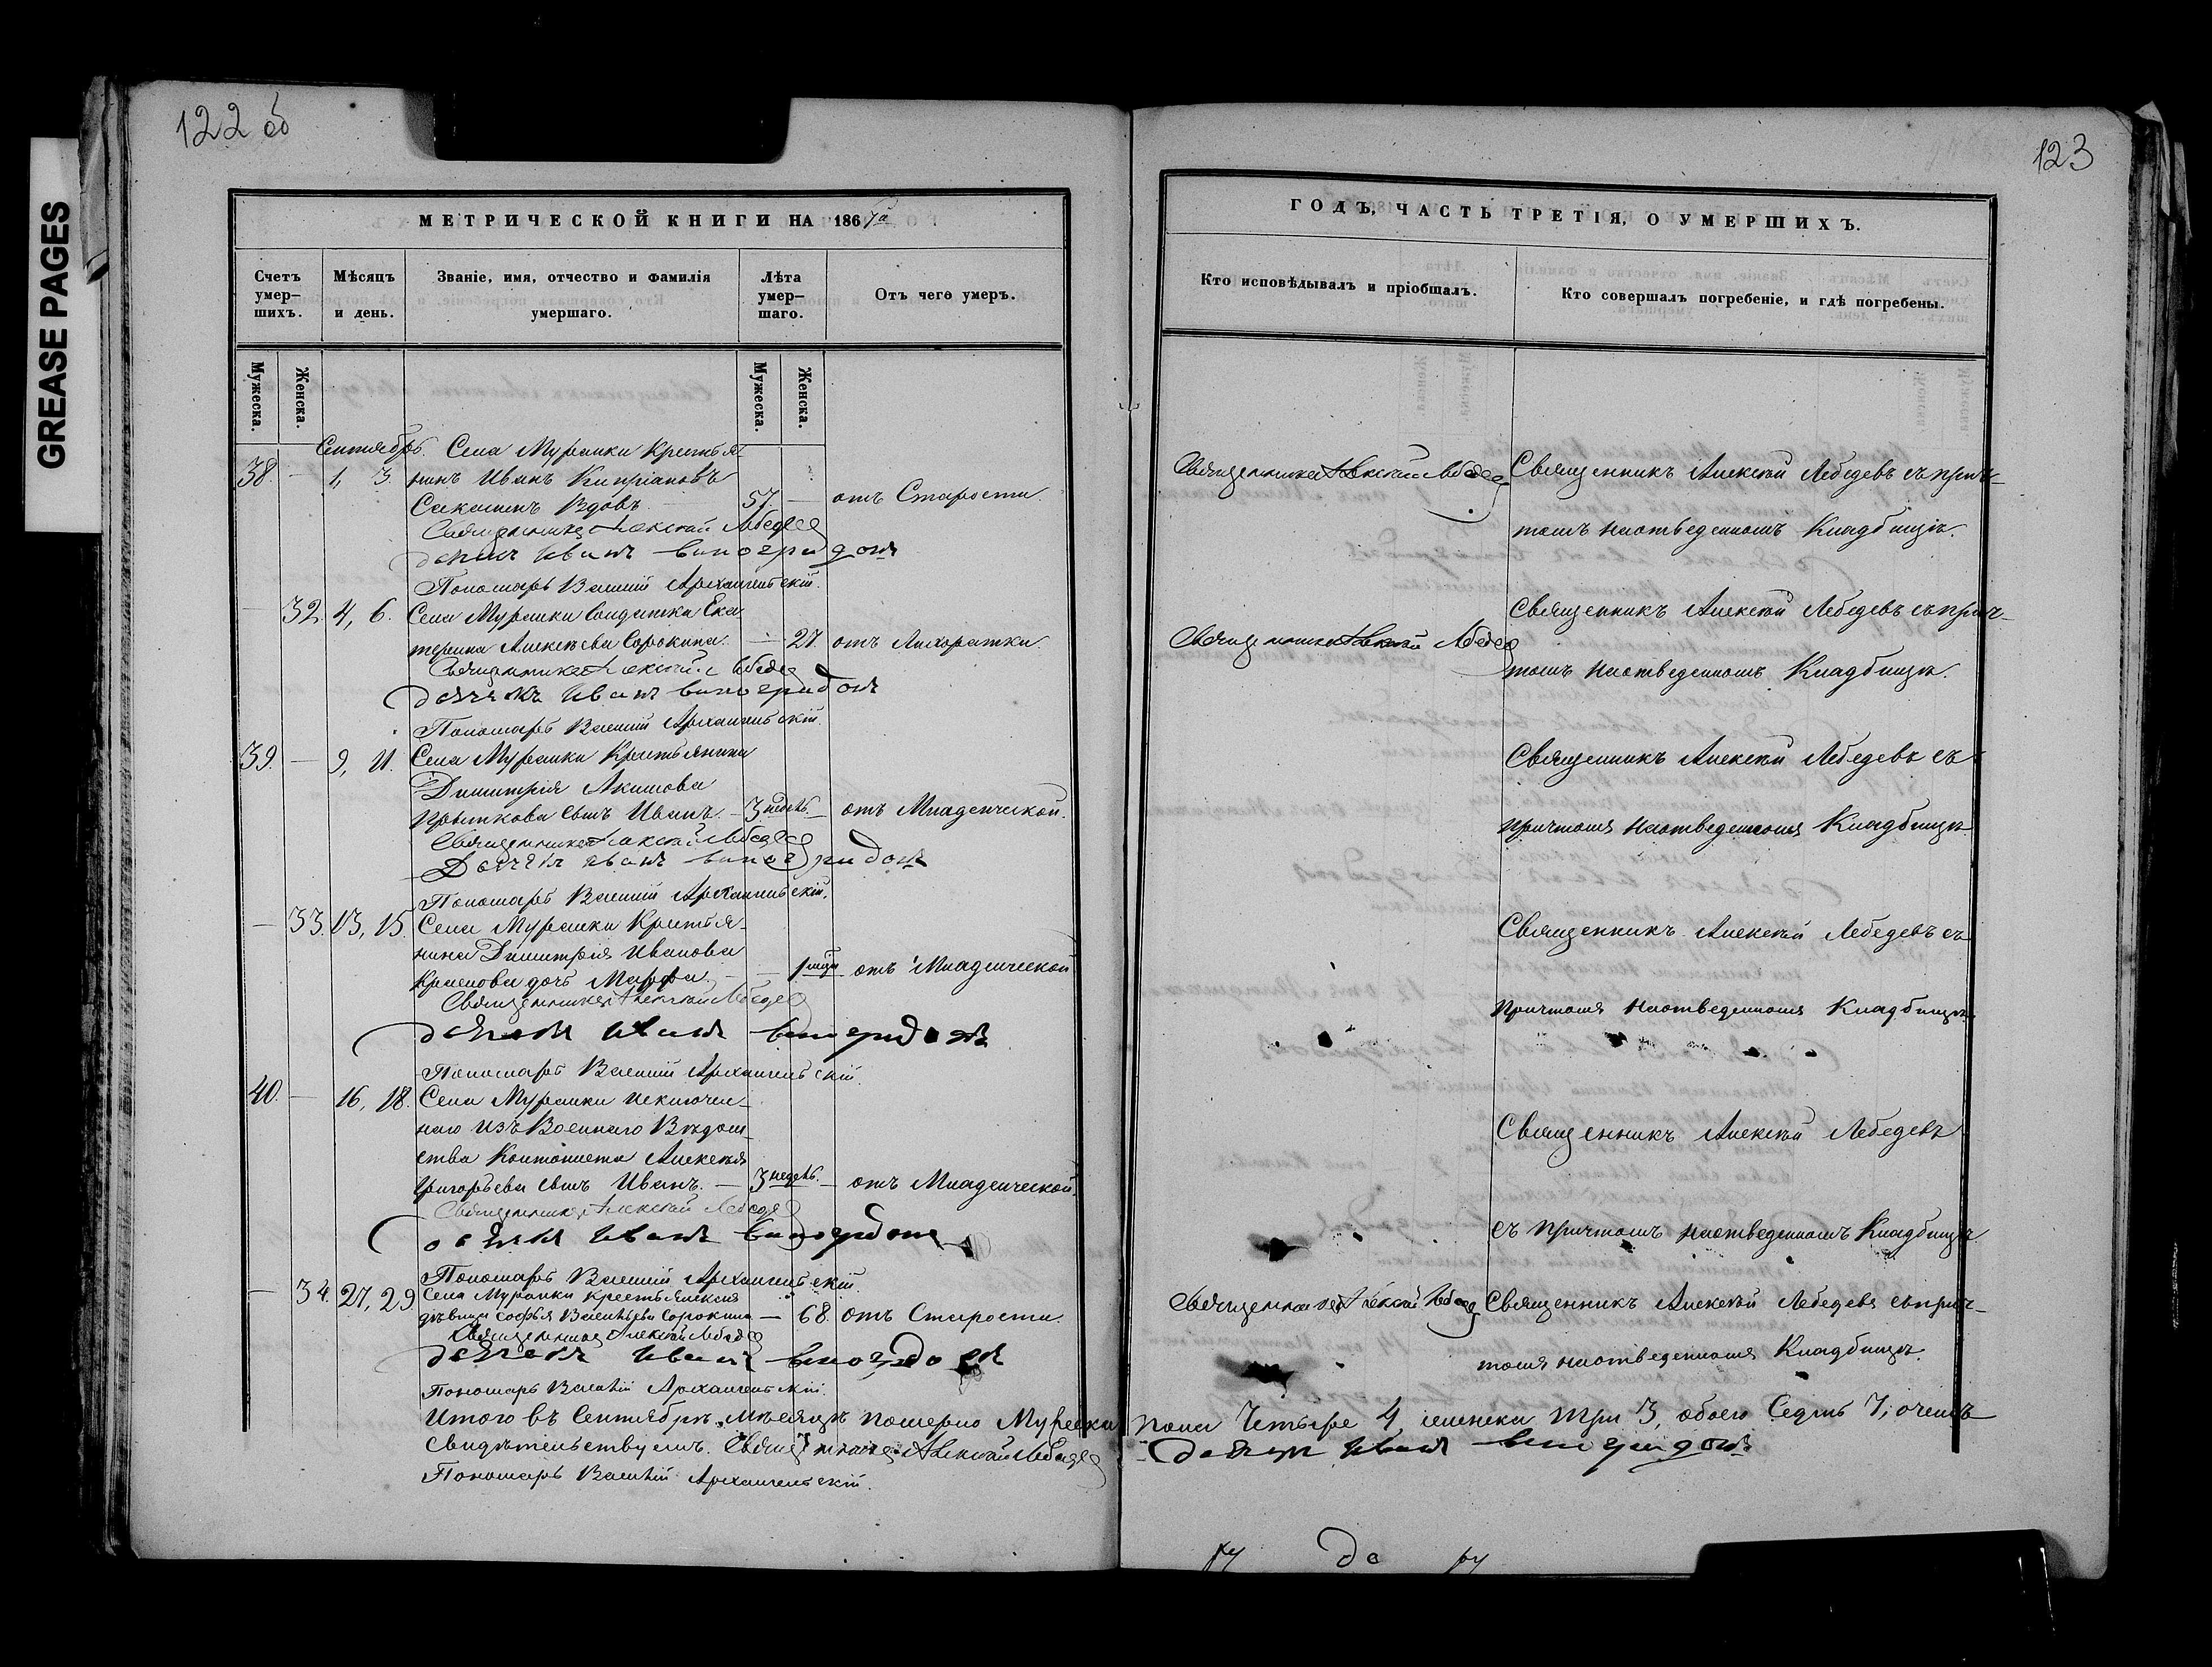 GREASE PAGES
122 об
МЕТРИЧЕСКОЙ КНИГИ НА 1867й
Счетъ умер-шихъ.
Мѣсяцъ и день.
Званіе, имя, отчество и фамилія умершаго.
Лѣта умер-шаго.
Отъ чего умеръ.
Мужеска.
Женска.
Мужеска.
Женска.
Сентябрь. Села Муранки Крестья-
38. — 1, 3. нинъ Иванъ Кипріановъ
Вдовъ. 57 — отъ Старости.
Священникъ Алексѣй Лебедев
Иванъ Виноградовъ
Пономарь Василій Архангельскій.
— 32. 4, 6. Села Муранки Солдатка Ека
терина Алексѣева Сорокина. — 27. отъ Лихоратки.
Священникъ Алексѣй Лебедев
дьячекъ Иванъ Виноградовъ
Пономарь Василій Архангельскій.
39. — 9, 11. Села Муранки Крестьянина
Димитрія Акимова
Прыткова сынъ Иванъ. — 3 недѣл. — отъ Младенческой.
Священникъ Алексѣй Лебедев
Дьячекъ Иванъ Виноградовъ
Пономарь Василій Архангельскій.
— 33. 13, 15. Села Муранки Крестья-
нина Димитрія Иванова
Краснова дочь Марфа. — — 1 отъ Младенческой
Священникъ Алексѣй Лебедев
дьячекъ Иванъ Виноградовъ
Пономарь Василій Архангельскій.
40. — 16, 18. Села Муранки исключен-
наго изъ Военнаго Вѣдом-
ства Кантониста Алексѣя
Григорьева сынъ Иванъ. — 3 недѣл. — отъ Младенческой.
Священникъ Алексѣй Лебедев
Иванъ Виноградовъ
Пономарь Василій Архангельскій.
— 34. 27, 29 Села Муранки Крестьянская
дѣвица Софья Васильева Сорокина — 68. отъ Старости.
Священникъ Алексѣй Лебедев
дьячекъ Иванъ Виноградовъ
Пономарь Василій Архангельскій.
Итого въ Сентябрѣ мѣсяцѣ померло Мужеска
Свидѣтельствуемъ. Священникъ Алексѣй Лебедев
Пономарь Василій Архангельскій.
123
ГОДЪ, ЧАСТЬ ТРЕТІЯ, О УМЕРШИХЪ.
Кто исповѣдывалъ и пріобщалъ.
Кто совершалъ погребеніе, и гдѣ погребены.
Священникъ Алексѣй Лебедев Священникъ Алексѣй Лебедевъ съ прич-
томъ на отведенномъ Кладбищѣ.
Священникъ Алексѣй Лебедевъ съ прич-
Священникъ Алексѣй Лебедев
томъ на отведенномъ Кладбищѣ.
Священникъ Алексѣй Лебедевъ съ
причтомъ на отведенномъ Кладбищѣ
Священникъ Алексѣй Лебедевъ съ
причтомъ на отведенномъ Кладбищѣ.
Священникъ Алексѣй Лебедевъ
съ причтомъ на отведенномъ Кладбищѣ.
Священникъ Алексѣй Лебедев Священникъ Алексѣй Лебедевъ съ прич-
томъ на отведенномъ Кладбищѣ.
пола Четыре 4, женска три 3, обоего Седмь 7; о чемъ
Иванъ Виноградовъ